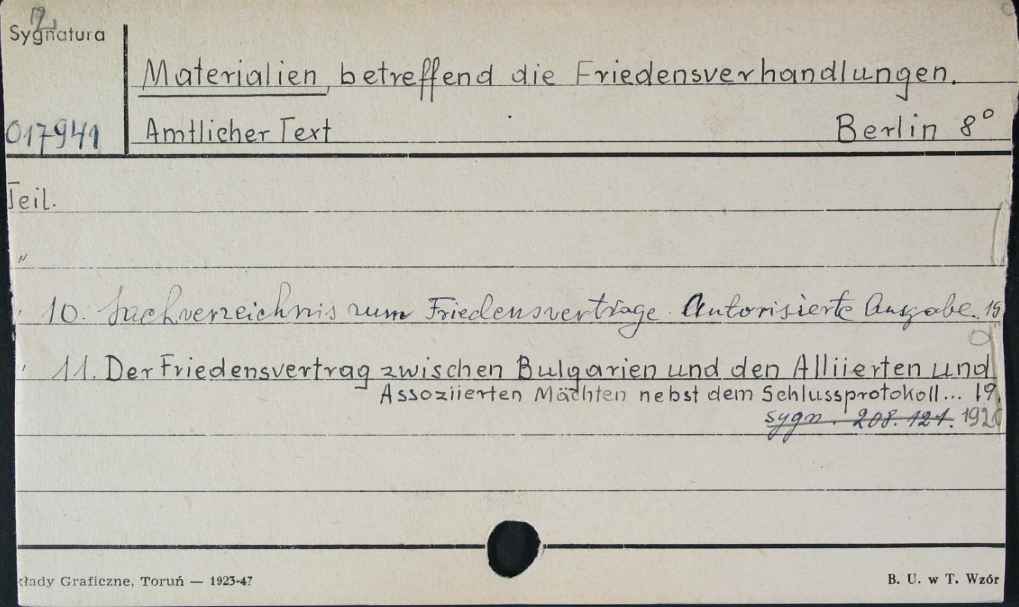 2,
Sygnatura
Materialien betreffend die Friedensverhandlungen.
017941 Amtlicher Text Berlin 8°
Teil.
"
" 10. Sachverzeichnis zum Friedensvertrage. Autorisierte Ausgabe. 19
" 11. Der Friedensvertrag zwischen Bulgarien und den Alliierten und
Assoziierten Mächten nebst dem Schlussprotokoll... 19.
sygn. 208.121. 192
kłady Graficzne, Toruń — 1923-47 B. U. w T. Wzór